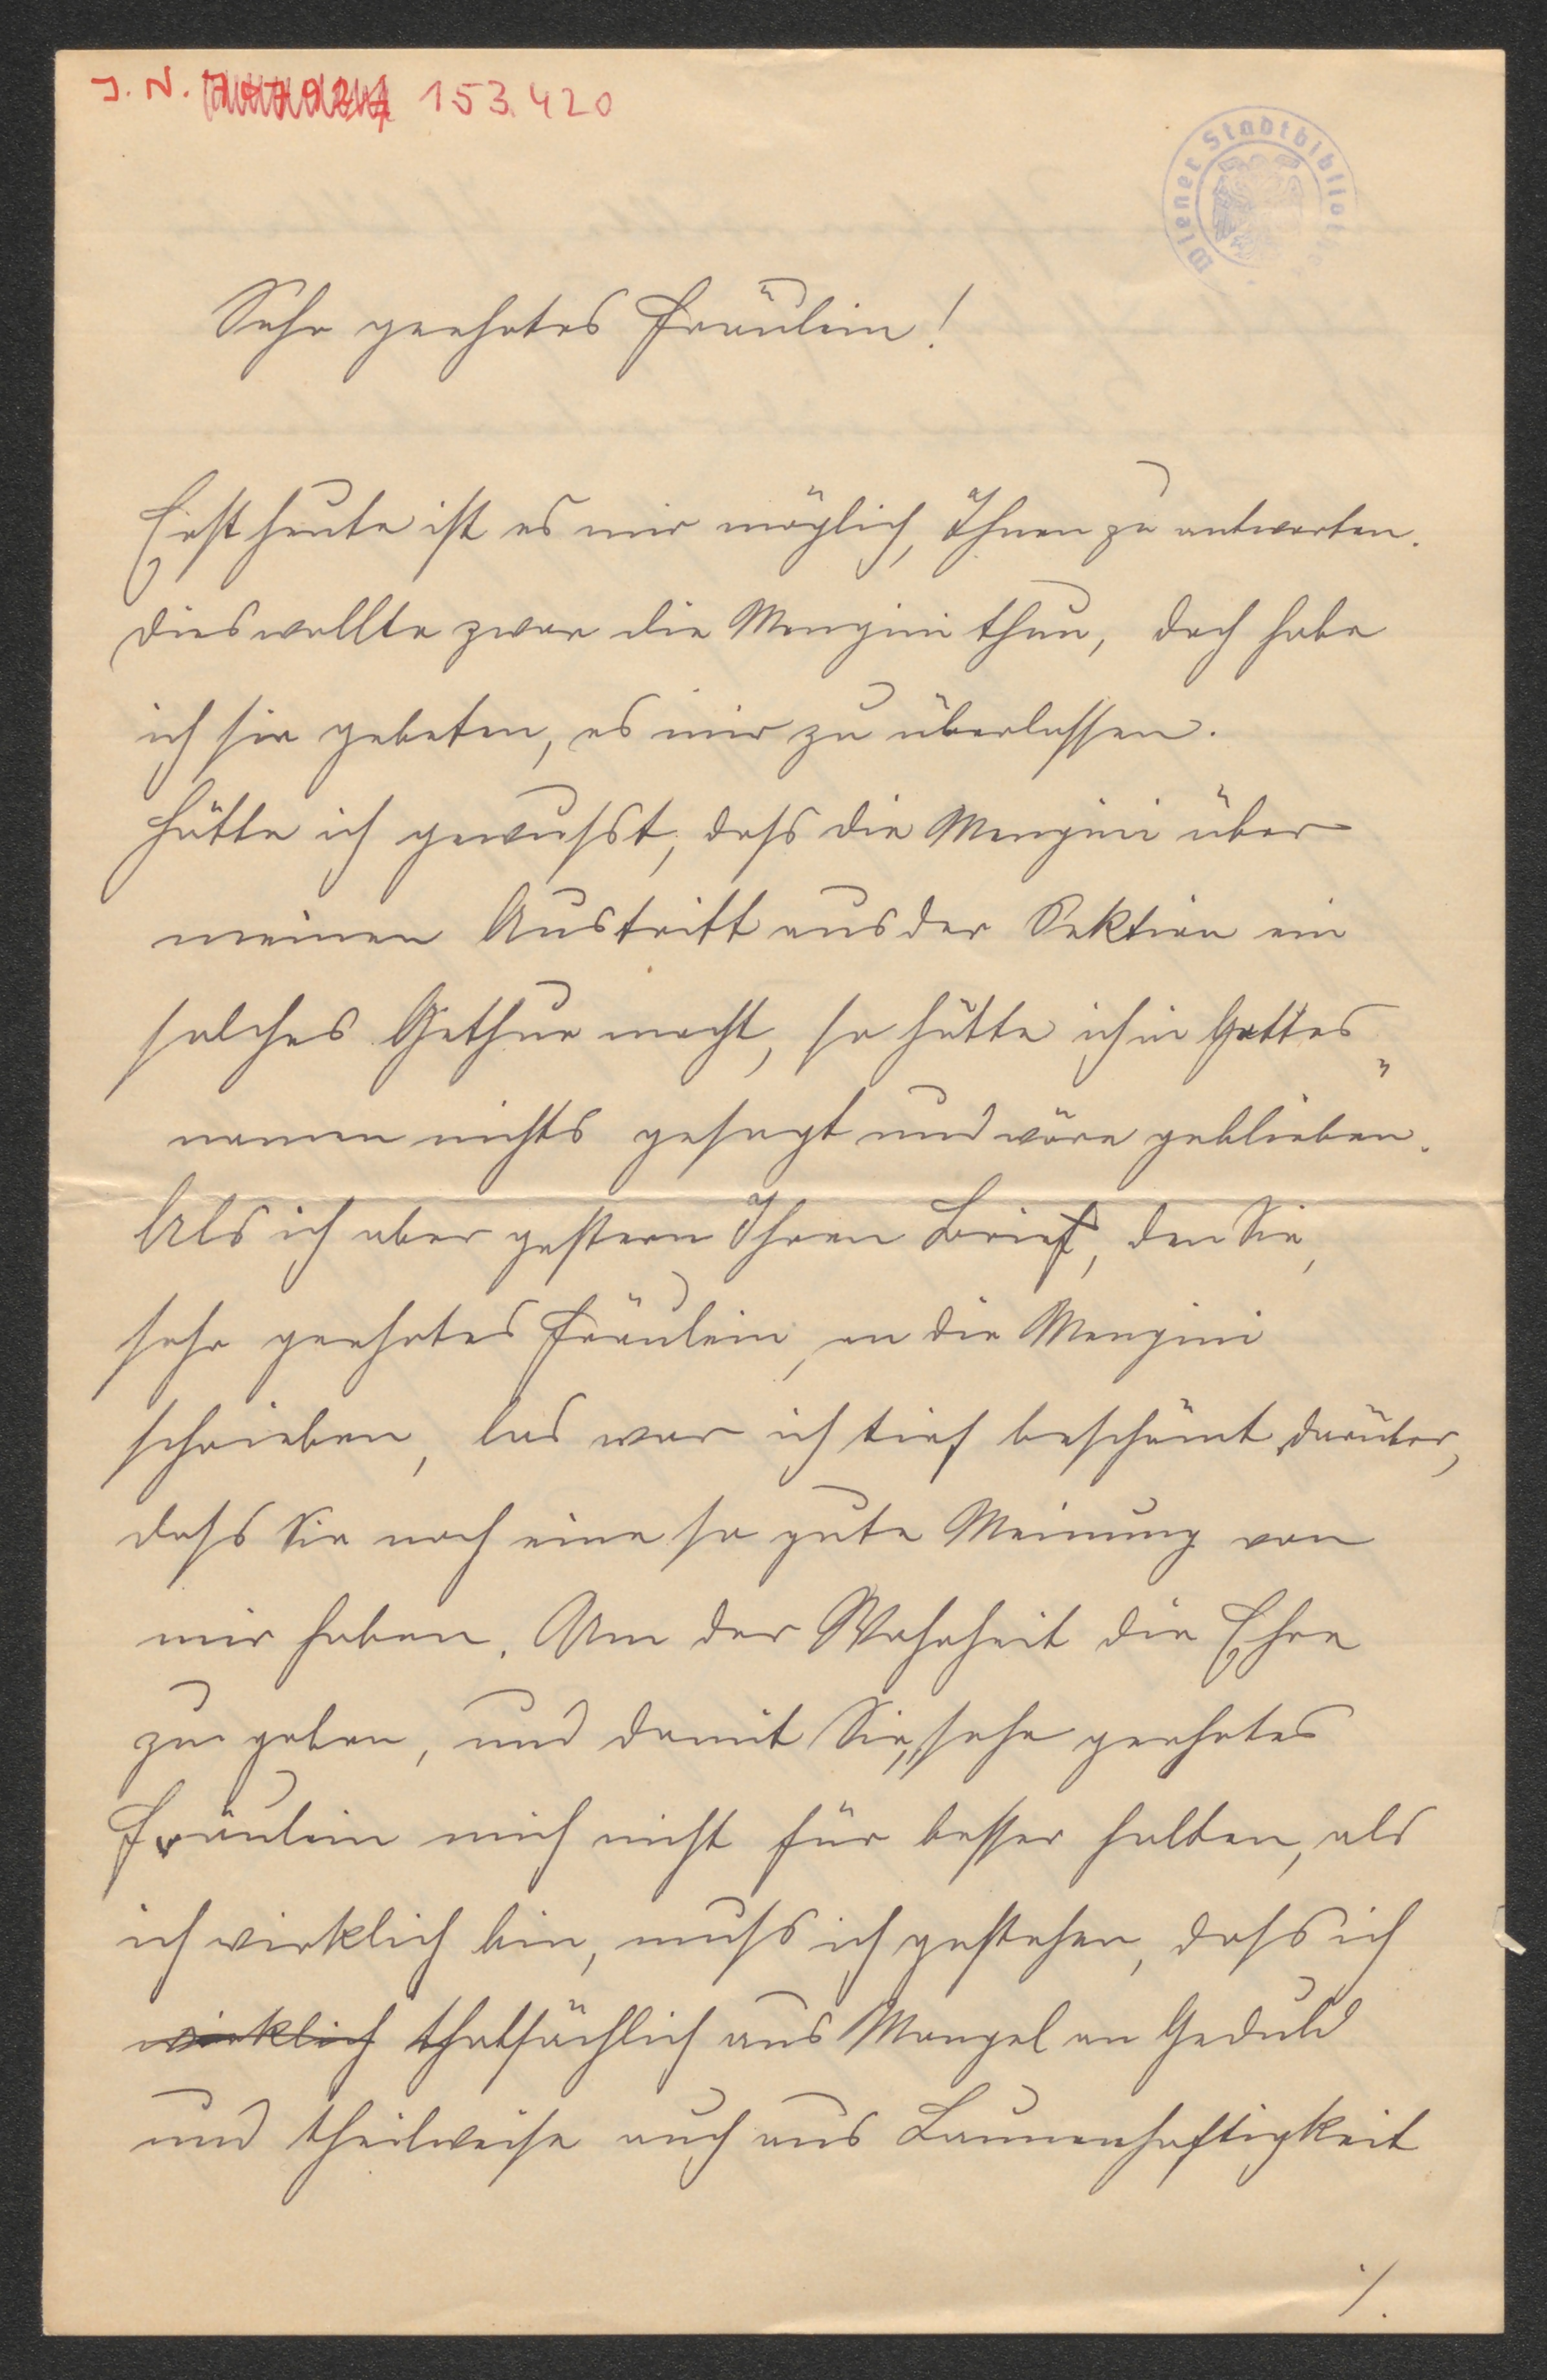 J. N. 153.420
Wiener Stadtbibliothek
Sehr geehrtes Fräulein!
Erst heute ist es mir möglich, Ihnen zu antworten.
Dies wollte zwar die Mengini thun, doch habe
ich sie gebeten, es mir zu überlassen.
Hätte ich gewusst, dass die Mengini über
meinen Austritt aus der Sektion ein
solches Gethue macht, so hätte ich in Gottes
namen nichts gesagt und wäre geblieben.
Als ich aber gestern Ihren Brief, den Sie,
sehr geehrtes Fräulein, an die Mengini
schrieben, las war ich tief beschämt darüber,
dass Sie noch eine so gute Meinung von
mir haben. Um der Wahrheit die Ehre
zu geben, und damit Sie, sehr geehrtes
Fräulein mich nicht für besser halten, als
ich wirklich bin, muss ich gestehen, dass ich
wirklich thatsächlich aus Mangel an Geduld
und theilweise auch aus Launenhaftigkeit
./.